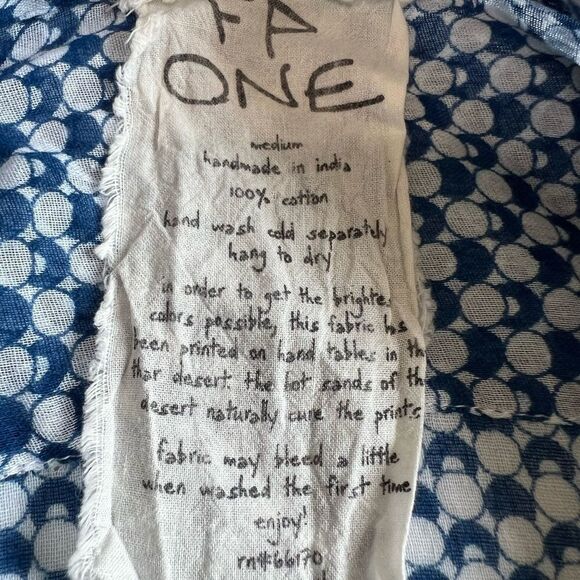 ONE
medium
handmade in india
100% cotton
hand wash cold separately
hang to dry
in order to get the brighte
colors possible, this fabric has
been printed on hand tables in th
thar desert. the hot sands of th
desert naturally cure the prints
fabric may bleed a little
when washed the first time
enjoy!
rn#66170